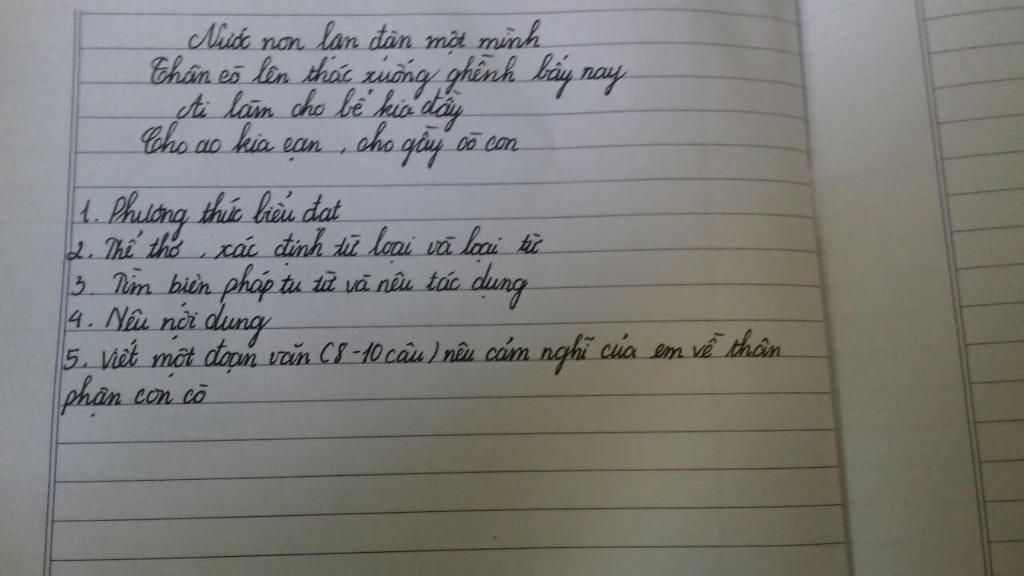 Nước non lận đận một mình
Thân cò lên thác xuống ghềnh bấy nay
Ai làm cho bể kia đầy
Cho ao kia cạn, cho gầy cò con
1. Phương thức biểu đạt
2. Thể thơ, xác định từ loại và loại từ
3. Tìm biện pháp tu từ và nêu tác dụng
4. Nêu nội dung
5. Viết một đoạn văn (8-10 câu) nêu cảm nghĩ của em về thân
phận con cò